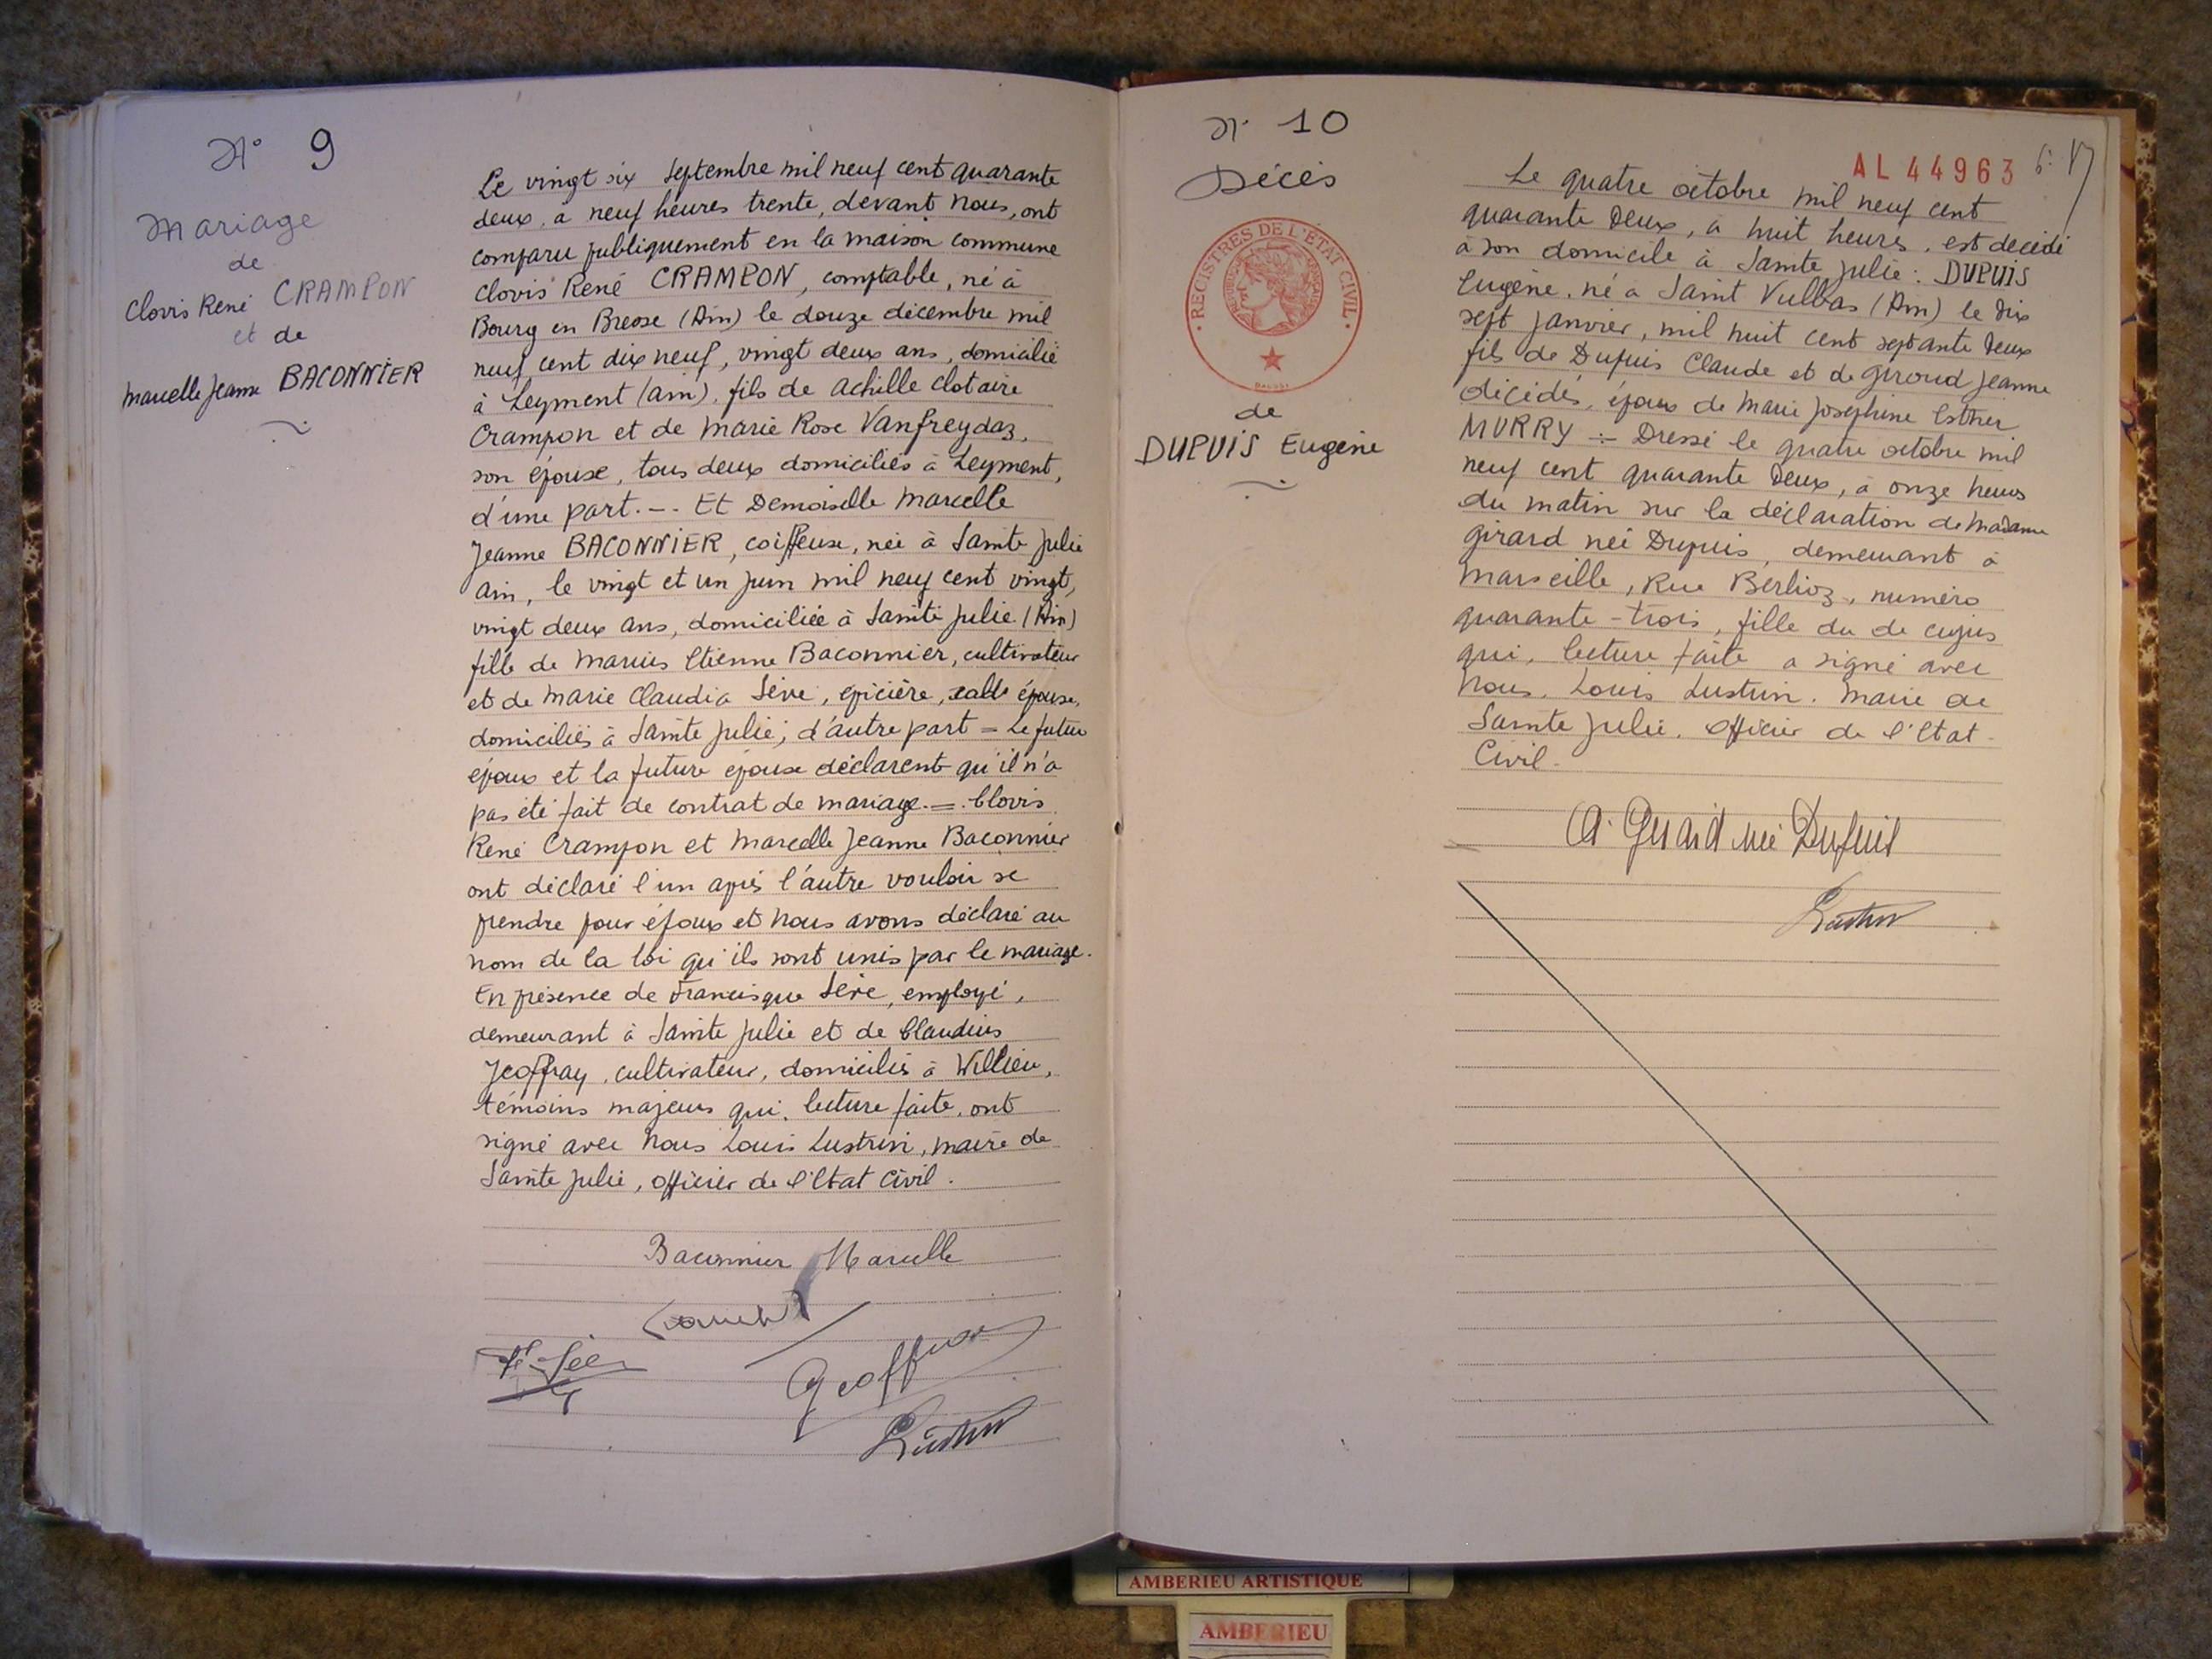 N° 9
Mariage
de
Clovis René CRAMPON
et de
Marcelle Jeanne BACONNIER
Le vingt six Septembre mil neuf cent quarante
deux, à neuf heures trente, devant nous, ont
comparu publiquement en la maison commune
Clovis René CRAMPON, comptable, né à
Bourg en Bresse (Ain) le douze décembre mil
neuf cent dix neuf, vingt deux ans, domicilié
à Leyment (Ain), fils de Achille Clotaire
Crampon et de Marie Rose Vanfreydaz,
son épouse, tous deux domiciliés à Leyment,
d'une part. -. Et Demoiselle Marcelle
Jeanne BACONNIER, coiffeuse, née à Sainte Julie
Ain, le vingt et un juin mil neuf cent vingt,
vingt deux ans, domiciliée à Sainte Julie (Ain)
fille de Marius Etienne Baconnier, cultivateur
et de Marie Claudia Sève, épicière, épouse,
domiciliés à Sainte Julie; d'autre part = Le futur
époux et la future épouse déclarent qu'il n'a
pas été fait de contrat de mariage. =. Clovis
René Crampon et Marcelle Jeanne Baconnier
ont déclaré l'un après l'autre vouloir se
prendre pour époux et nous avons déclaré au
nom de la loi qu'ils sont unis par le mariage.
En présence de Francisque Sève, employé,
demeurant à Sainte Julie et de Claudius
Jeoffray, cultivateur, domiciliés à Villieu,
témoins majeurs qui, lecture faite, ont
signé avec Nous Louis Lustrin, maire de
Sainte Julie, officier de l'Etat Civil.
Baconnier Marcelle
Geoffray
Lustrin
N° 10
Décès
REGISTRES DE L'ETAT CIVIL
de
DUPUIS Eugène
AL 44963
Le quatre octobre mil neuf cent
quarante deux, à huit heures, est décédé
à son domicile à Sainte Julie: DUPUIS
Eugène, né à Saint Vulbas (Ain) le dix
sept janvier, mil huit cent septante deux
fils de Dupuis Claude et de Giroud Jeanne
décédés, époux de Marie Josephine Esther
MURRY ÷ Dressé le quatre octobre mil
neuf cent quarante deux, à onze heures
du matin sur la déclaration de Madame
Girard née Dupuis, demeurant à
Marseille, Rue Berlioz, numéro
quarante-trois, fille du de cujus
qui, lecture faite a signé avec
Nous, Louis Lustrin. Maire de
Sainte Julie, officier de l'Etat
Civil.
A. Girard née Dupuis
Lustrin
AMBERIEU ARTISTIQUE
AMBERIEU